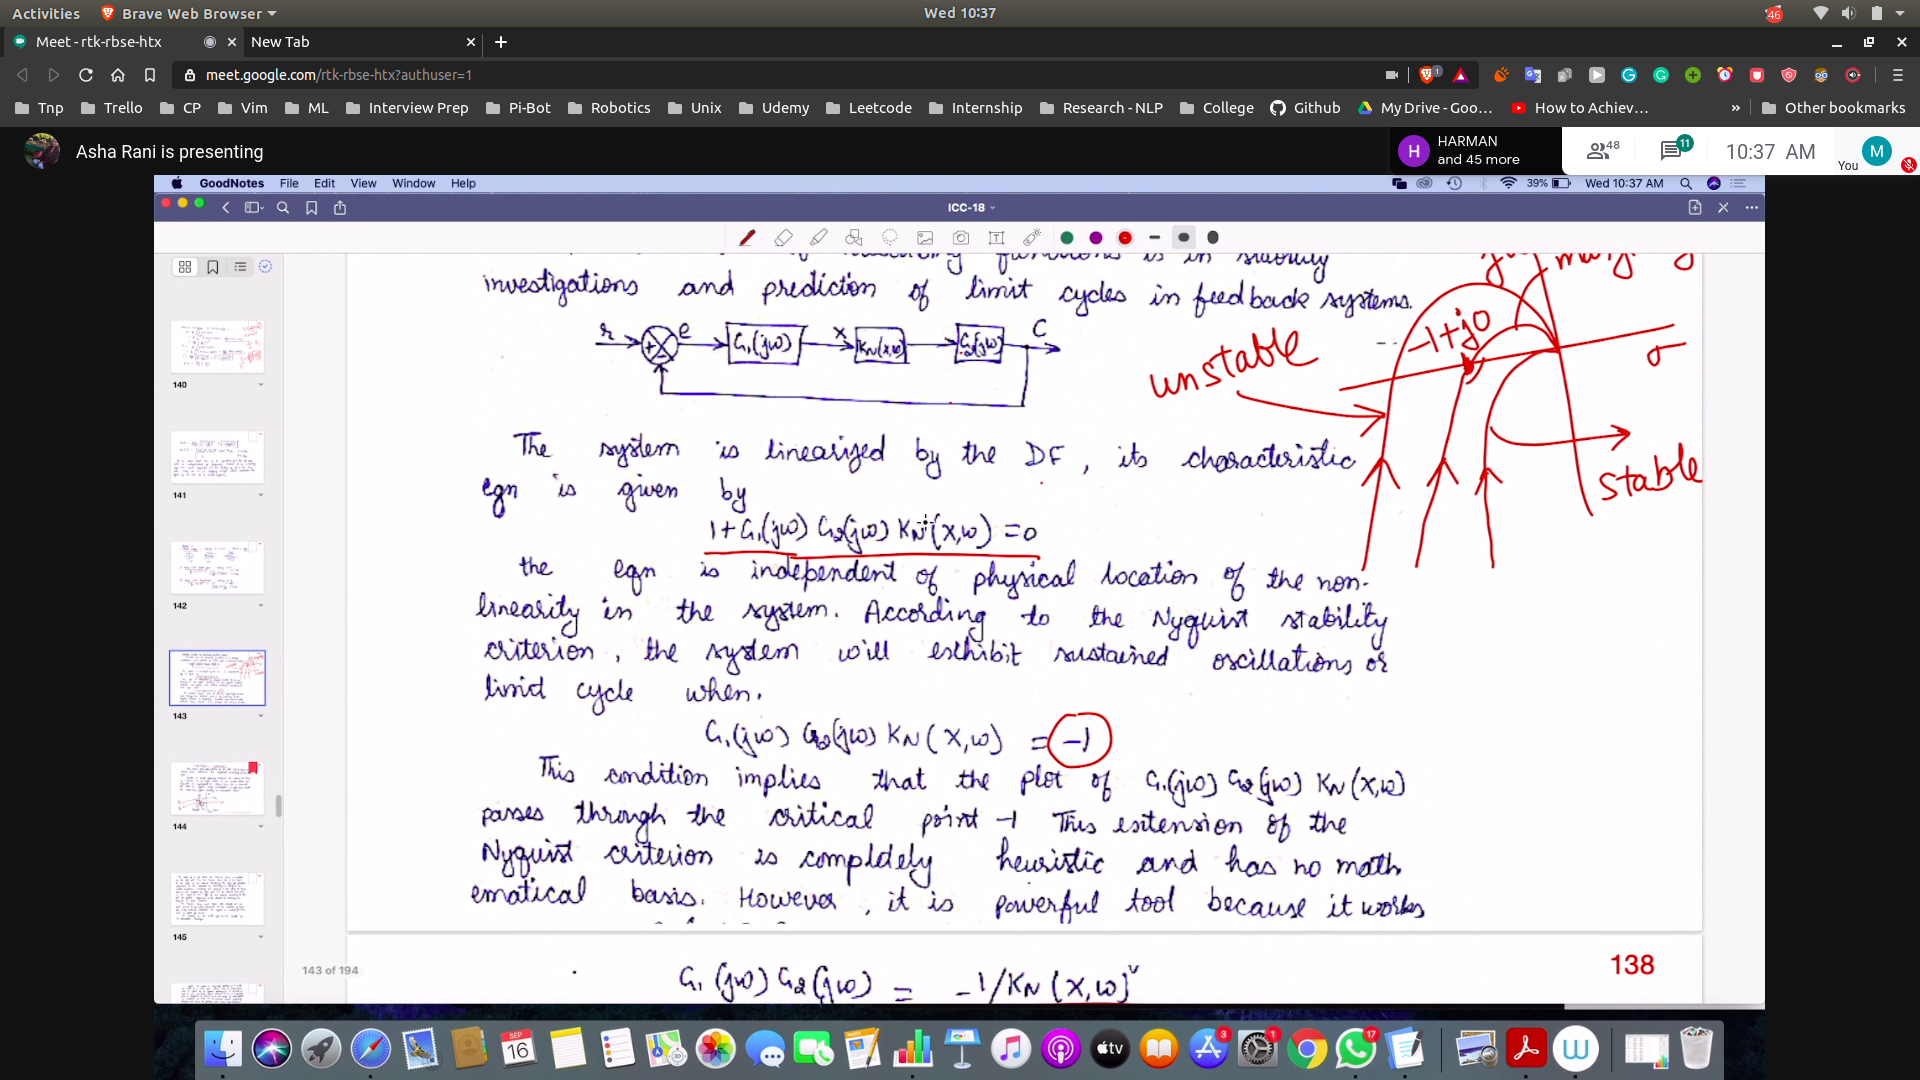 Activities Brave Web Browser Wed 10:37 46
Meet - rtk-rbse-htx New Tab
meet.google.com/rtk-rbse-htx?authuser=1
Tnp Trello CP Vim ML Interview Prep Pi-Bot Robotics Unix Udemy Leetcode Internship Research - NLP College Github My Drive - Goo... How to Achiev... » Other bookmarks
Asha Rani is presenting
H HARMAN and 45 more 48 11 10:37 AM You M
GoodNotes File Edit View Window Help 39% Wed 10:37 AM
ICC-18
functions is in stability
investigations and prediction of limit cycles in feedback systems.
r e G1(jω) x KN(x,ω) G2(jω) C
-1+j0
σ
unstable
stable
The system is linearized by the DF, its characteristic
eqn is given by
1+G1(jω) G2(jω) KN(X,ω) =0
the eqn is independent of physical location of the non-
linearity in the system. According to the Nyquist stability
criterion, the system will exhibit sustained oscillations or
limit cycle when.
G1(jω) G2(jω) KN(X,ω) = -1
This condition implies that the plot of G1(jω) G2(jω) KN(X,ω)
passes through the critical point -1 This extension of the
Nyquist criterion is completely heuristic and has no math
ematical basis. However, it is powerful tool because it works
G1(jω) G2(jω) = -1/KN(X,ω)
138
143 of 194
140
141
142
143
144
145
SEP 16
tv
3
1
17